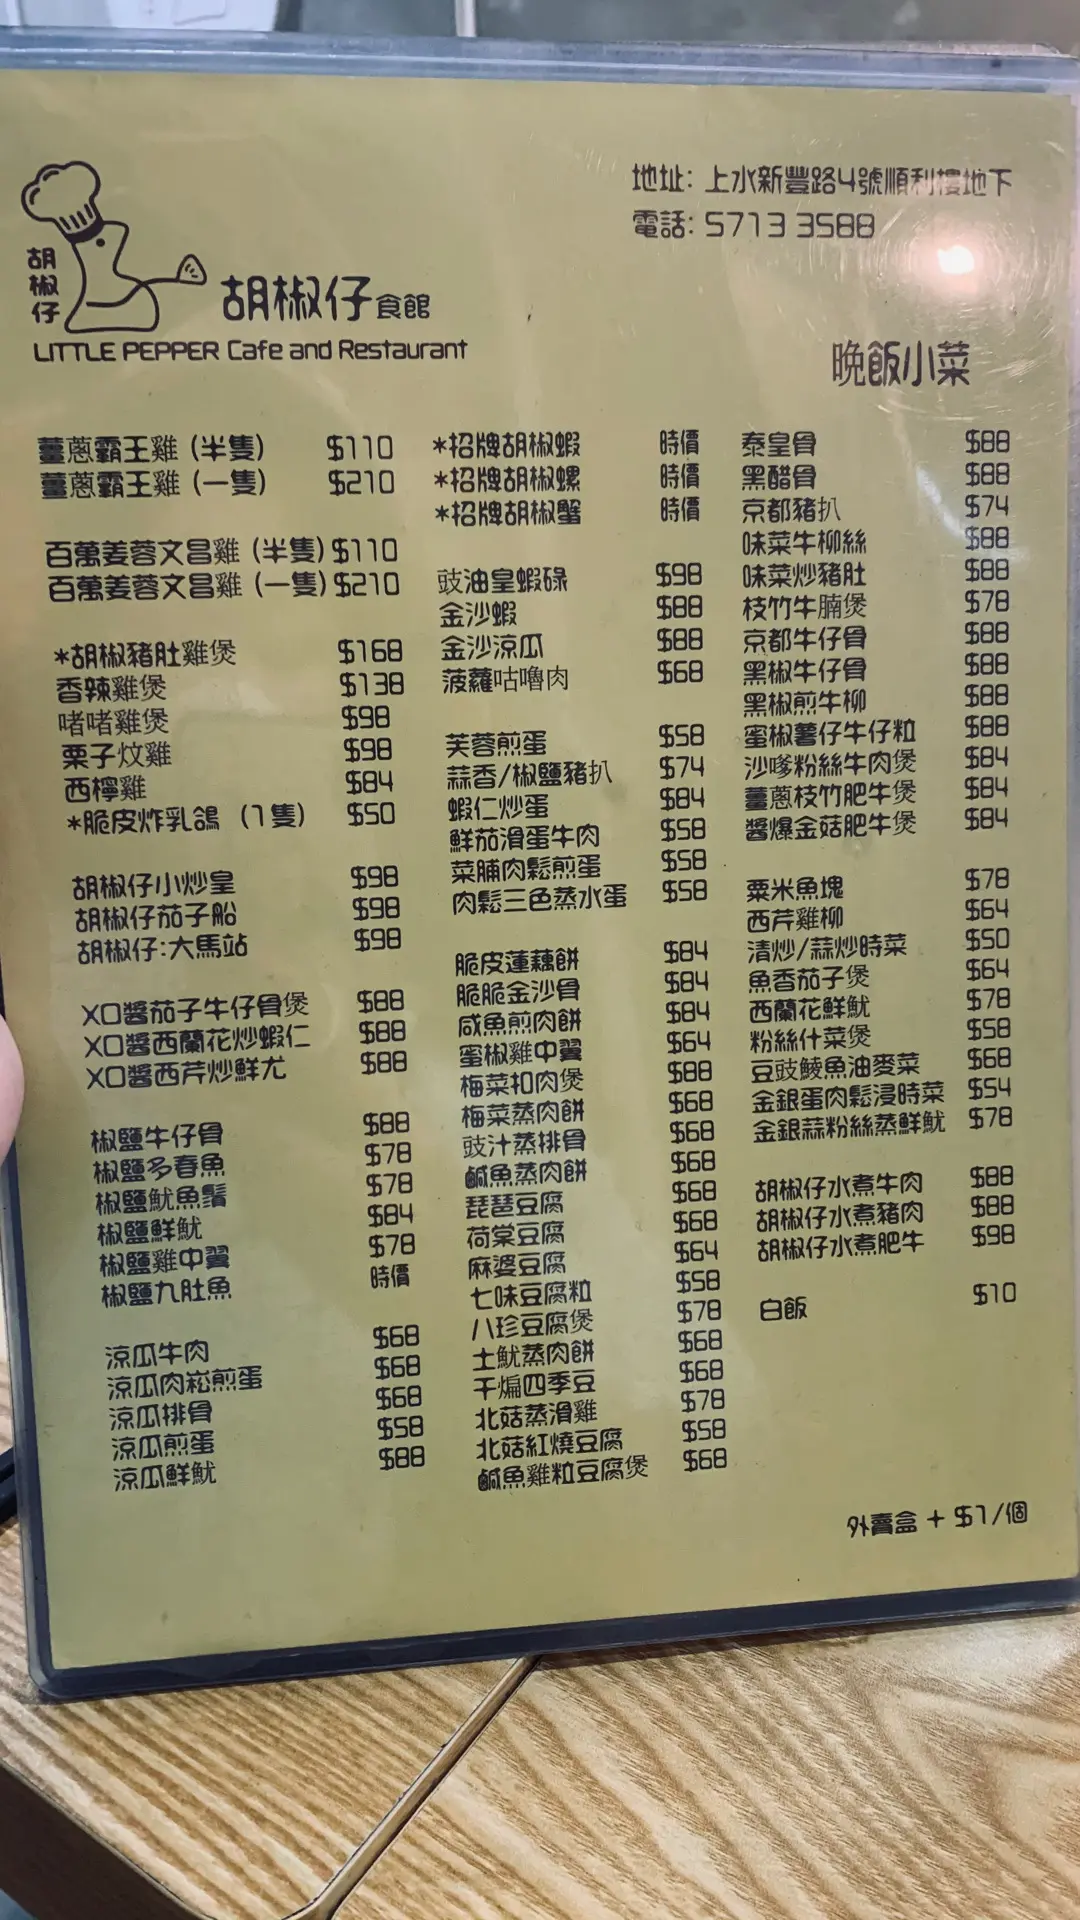 地址: 上水新豐路4號順利樓地下
電話: 5713 3588
胡椒仔
胡椒仔食館
LITTLE PEPPER Cafe and Restaurant
晚飯小菜
薑蔥霸王雞 (半隻) $110
薑蔥霸王雞 (一隻) $210
百萬姜蓉文昌雞 (半隻) $110
百萬姜蓉文昌雞 (一隻) $210
*胡椒豬肚雞煲 $168
香辣雞煲 $138
啫啫雞煲 $98
栗子炆雞 $98
西檸雞 $84
*脆皮炸乳鴿 (1隻) $50
胡椒仔小炒皇 $98
胡椒仔茄子船 $98
胡椒仔:大馬站 $98
XO醬茄子牛仔骨煲 $88
XO醬西蘭花炒蝦仁 $88
XO醬西芹炒鮮尤 $88
椒鹽牛仔骨 $88
椒鹽多春魚 $78
椒鹽魷魚鬚 $78
椒鹽鮮魷 $84
椒鹽雞中翼 $78
椒鹽九肚魚 時價
涼瓜牛肉 $68
涼瓜肉崧煎蛋 $68
涼瓜排骨 $68
涼瓜煎蛋 $58
涼瓜鮮魷 $88
*招牌胡椒蝦 時價
*招牌胡椒螺 時價
*招牌胡椒蟹 時價
豉油皇蝦碌 $98
金沙蝦 $88
金沙涼瓜 $88
菠蘿咕嚕肉 $68
芙蓉煎蛋 $58
蒜香/椒鹽豬扒 $74
蝦仁炒蛋 $84
鮮茄滑蛋牛肉 $58
菜脯肉鬆煎蛋 $58
肉鬆三色蒸水蛋 $58
脆皮蓮藕餅 $84
脆脆金沙骨 $84
咸魚煎肉餅 $84
蜜椒雞中翼 $64
梅菜扣肉煲 $88
梅菜蒸肉餅 $68
豉汁蒸排骨 $68
鹹魚蒸肉餅 $68
琵琶豆腐 $68
荷棠豆腐 $68
麻婆豆腐 $64
七味豆腐粒 $58
八珍豆腐煲 $78
土魷蒸肉餅 $68
干煸四季豆 $68
北菇蒸滑雞 $78
北菇紅燒豆腐 $58
鹹魚雞粒豆腐煲 $68
泰皇骨 $88
黑醋骨 $88
京都豬扒 $74
味菜牛柳絲 $88
味菜炒豬肚 $88
枝竹牛腩煲 $78
京都牛仔骨 $88
黑椒牛仔骨 $88
黑椒煎牛柳 $88
蜜椒薯仔牛仔粒 $88
沙嗲粉絲牛肉煲 $84
薑蔥枝竹肥牛煲 $84
醬爆金菇肥牛煲 $84
粟米魚塊 $78
西芹雞柳 $64
清炒/蒜炒時菜 $50
魚香茄子煲 $64
西蘭花鮮魷 $78
粉絲什菜煲 $58
豆豉鯪魚油麥菜 $68
金銀蛋肉鬆浸時菜 $54
金銀蒜粉絲蒸鮮魷 $78
胡椒仔水煮牛肉 $88
胡椒仔水煮豬肉 $88
胡椒仔水煮肥牛 $98
白飯 $10
外賣盒 + $1/個